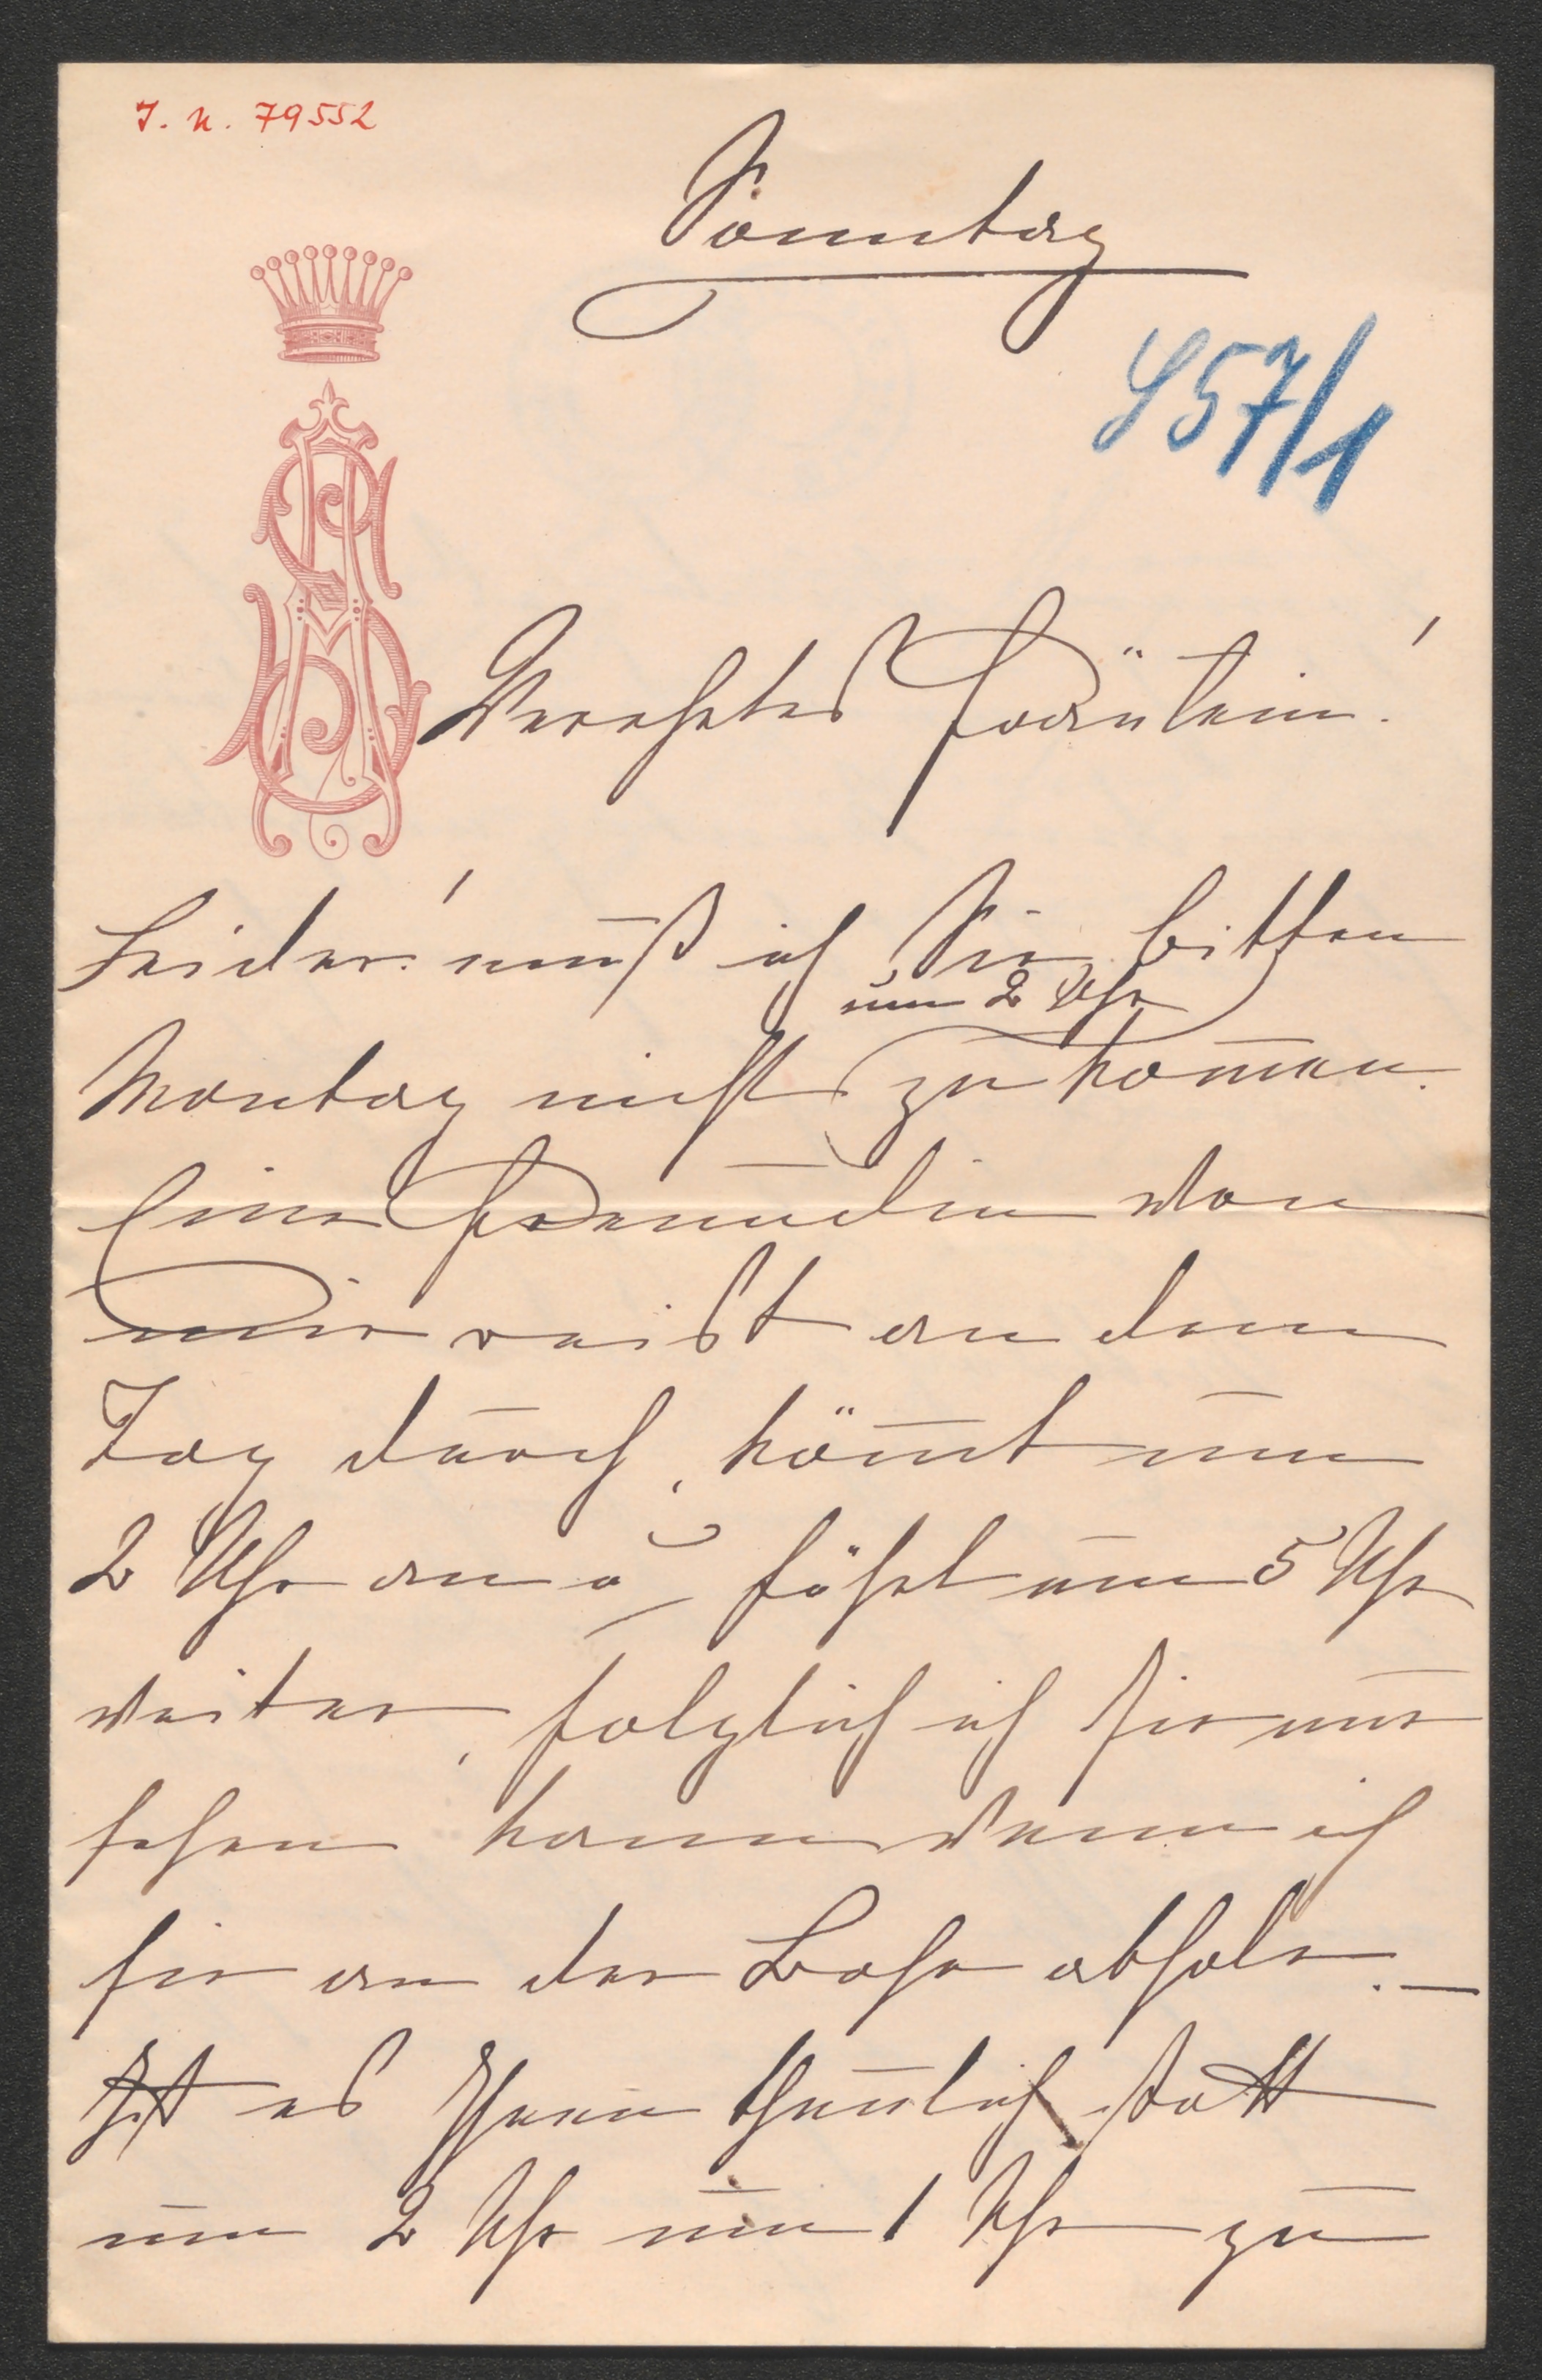 J. N. 79552
Sonntag
S 57/1
Verehrtes Fräulein!
Leider! muß ich Sie bitten
um 2 Uhr
Montag nicht zu kom̄en.
Eine Freundin von
mir reist an dem
Tag durch, köm̄t um
2 Uhr an u fährt um 5 Uhr
weiter, folglich ich sie nur
sehen kann wenn ich
sie an der Bahn abhole. —
Ist es Ihnen thunlich statt
um 2 Uhr um 1 Uhr zu